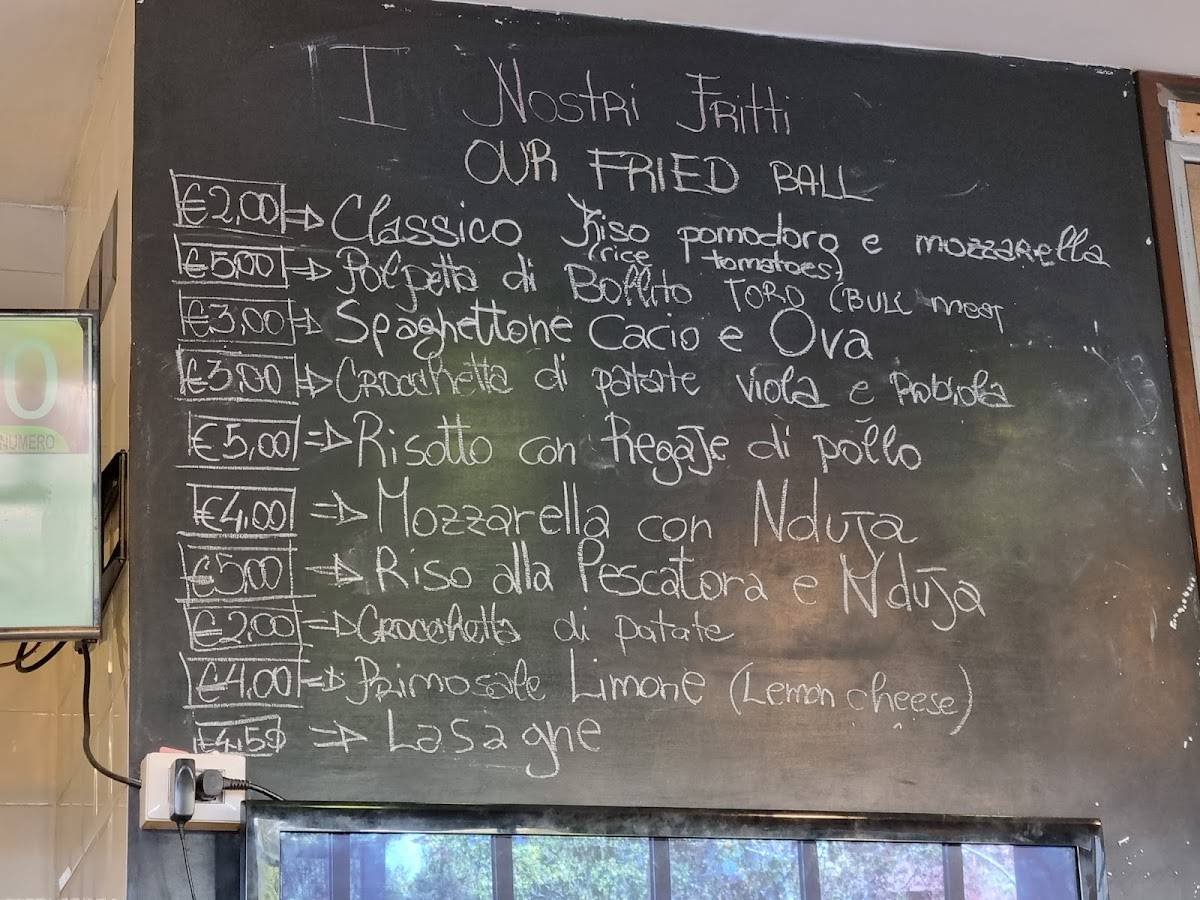 I Nostri Fritti
OUR FRIED BALL
€2,00 ⇒ Classico Riso pomodoro e mozzarella
(rice tomatoes)
€5,00 ⇒ Polpetta di Bollito TORO (BULL meat
€3,00 ⇒ Spaghettone Cacio e Ova
€3,00 ⇒ Crocchetta di patate viola e Robiola
€5,00 ⇒ Risotto con Regaje di pollo
€4,00 ⇒ Mozzarella con Nduja
€5,00 ⇒ Riso alla Pescatora e Nduja
€2,00 ⇒ Crocchetta di patate
€4,00 ⇒ Primosale Limone (Lemon cheese)
€4,50 ⇒ Lasagne
0
NUMERO